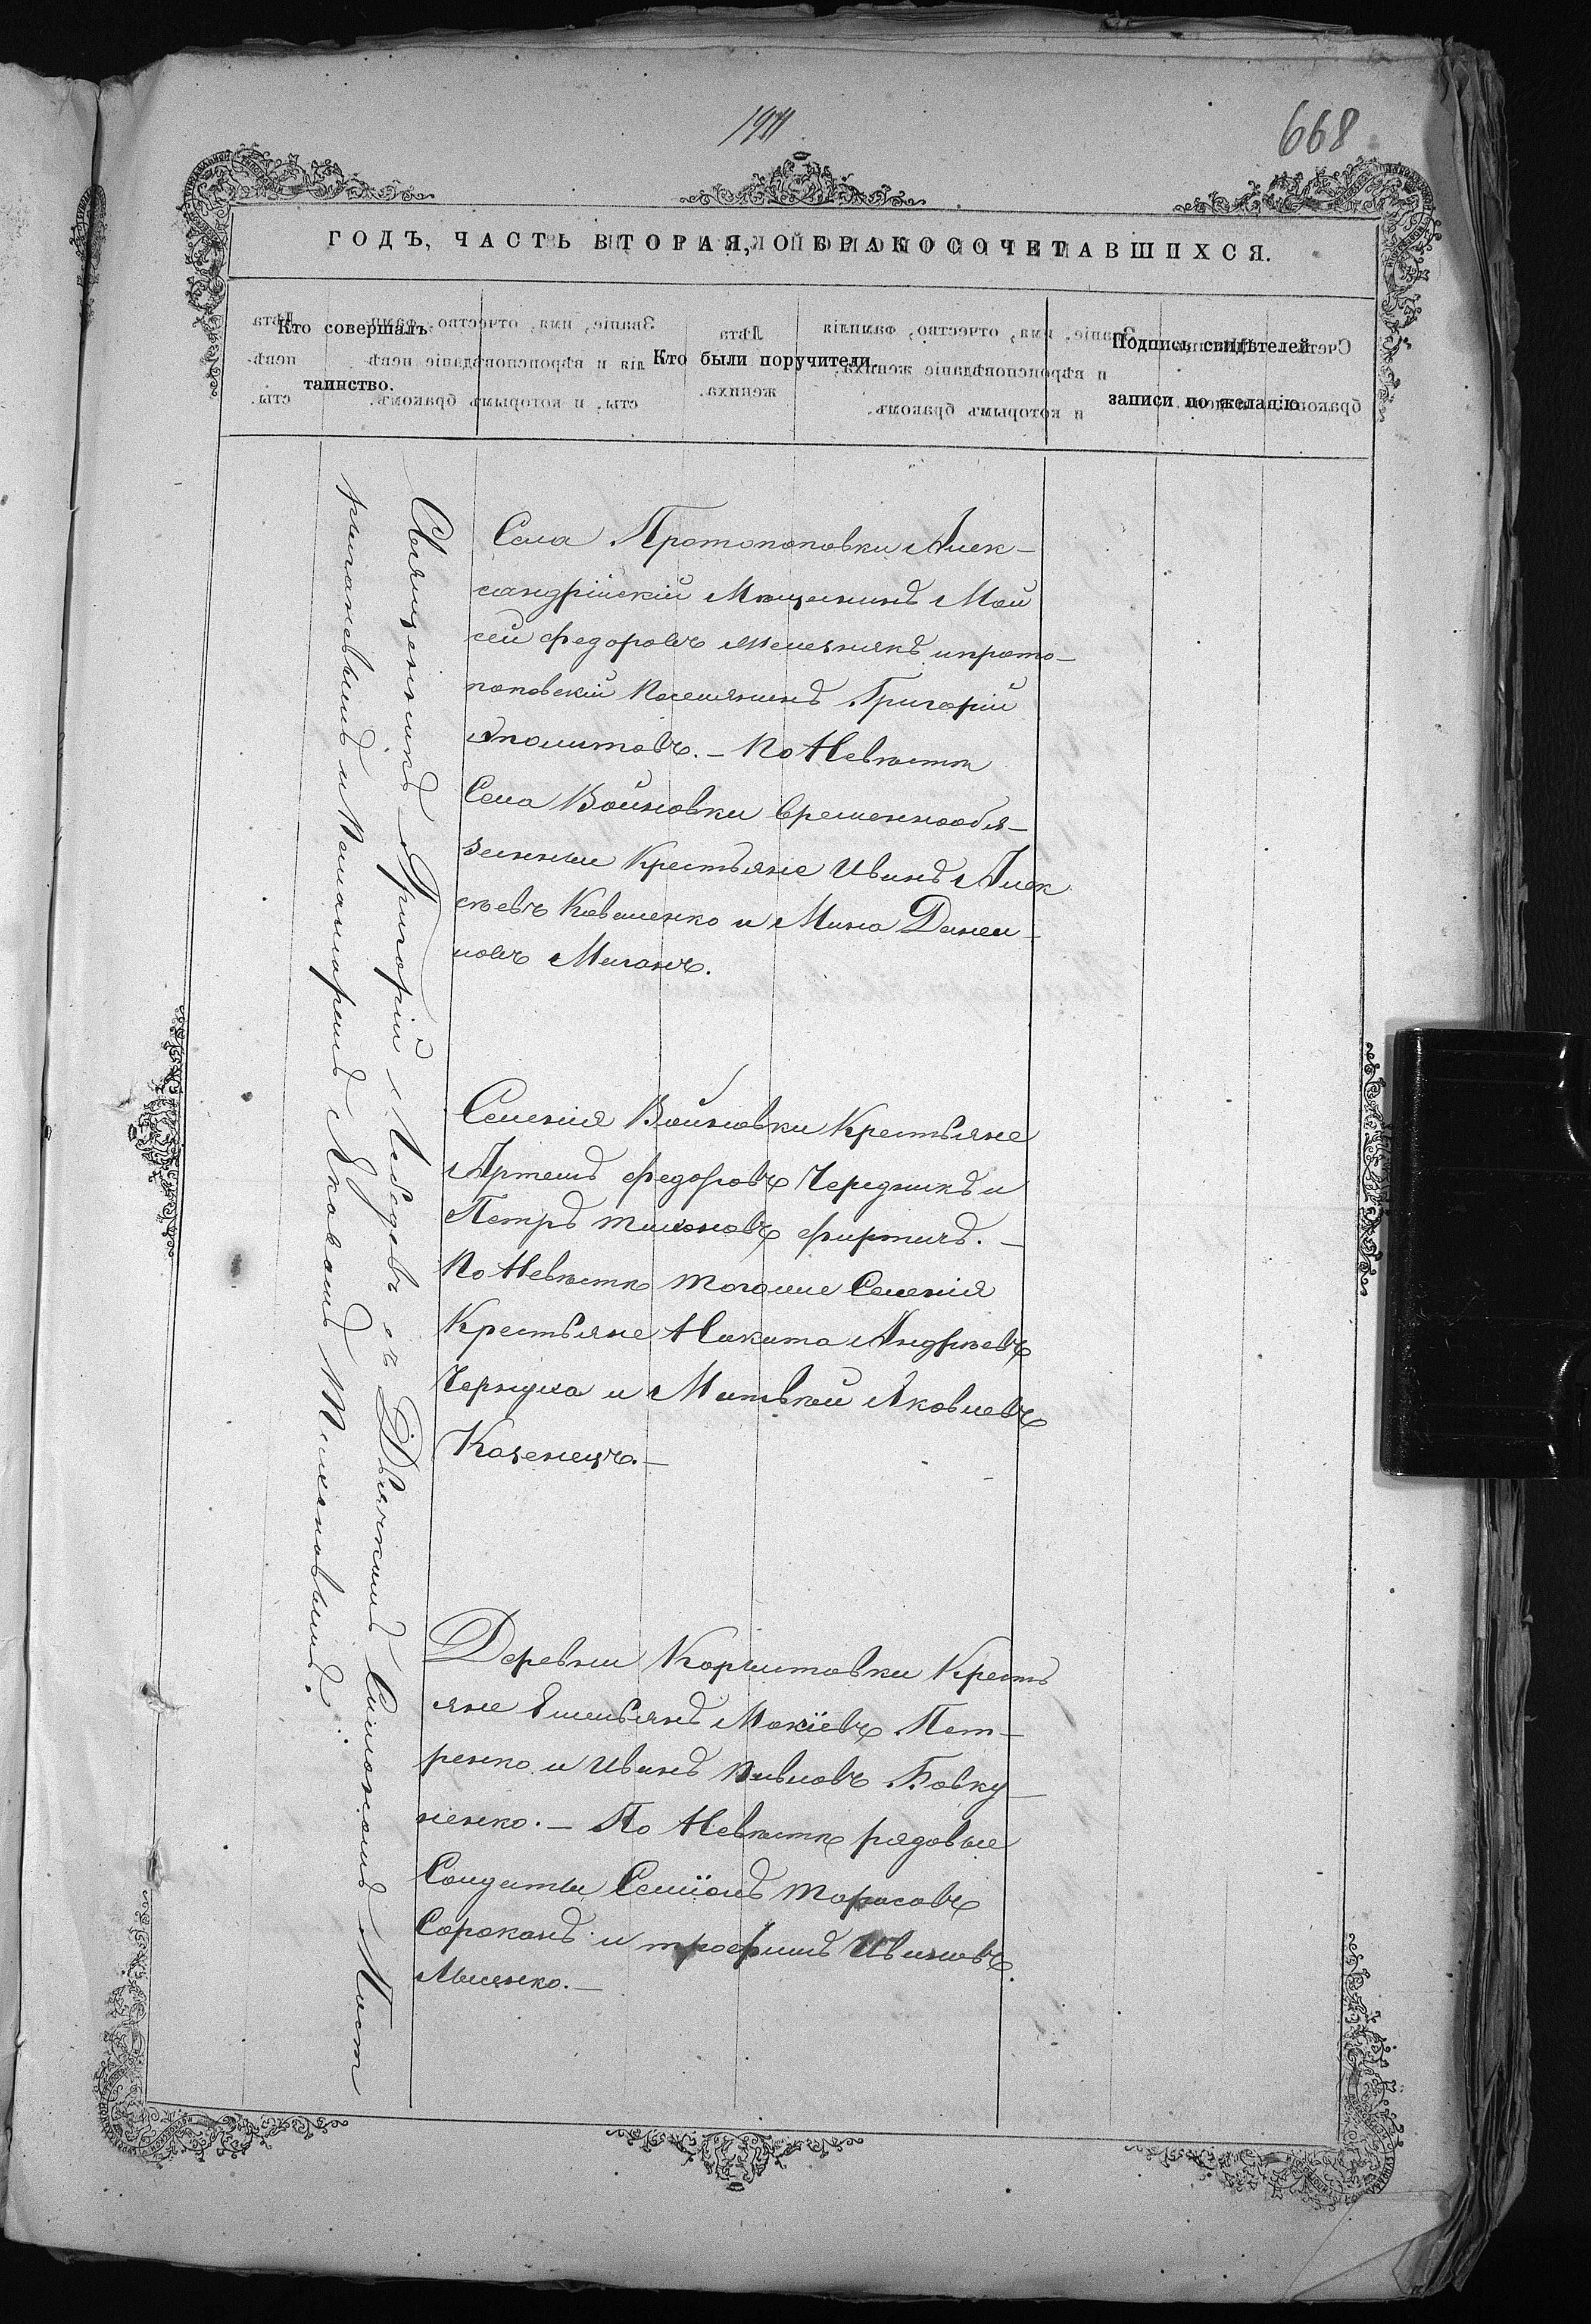 668
ГОДЪ, ЧАСТЬ ВТОРАЯ, О БРАКОСОЧЕТАВШИХСЯ.
Кто совершалъ
таинство.
Кто были поручители.
Подпись свидѣтелей
записи по желанію
Священникъ Григорій Лебедевъ съ Дьячкомъ Симономъ Мист
рюгановымъ и Пономаремъ Яковомъ Тихоновымъ.
Села Протопоповки Алек-
сандрійскій Мѣщанинъ Мои
сей Федоровъ Мелешнякъ и прото-
поповскій Поселянинъ Григорій
Аполитовъ. - По Невѣстѣ
Села Войновки временнообя-
занные Крестьяне Иванъ Алек
сѣевъ Коваленко и Мина Данеи-
ловъ Миганъ.
Селенія Войновки Крестьяне
Артемъ Федоровъ Чередникъ и
Петръ Тихоновъ Фиртичъ. -
По Невѣстѣ тогоже Селенія
Крестьяне Никита Андрѣевъ
Чернуха и Матвѣй Яковлевъ
Казенецъ. -
Деревни Кориштовки Кресть
яне Емельянъ Мокіевъ Пет-
ренко и Иванъ Павловъ Бовку-
ненко. - По Невѣстѣ рядовые
Солдаты Семіонъ Тарасовъ
Сороканъ и трофимъ Ивановъ
Лысенко. -